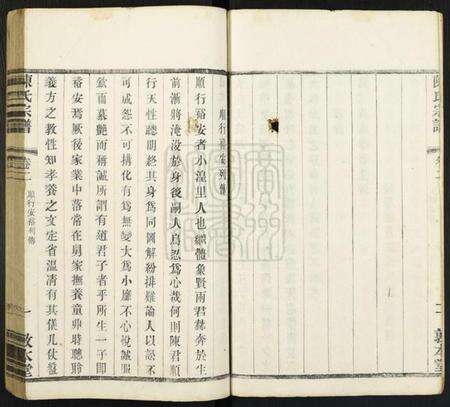 順行裕安列傳
順行裕安者小湟里人也纘體象賢雨君棻奔於生
前漸將淹沒於身後嗣人烏忍為心哉何則陳君順
行天性聰明終其身為同圖解紛排難論人以訟不
可成怨不可搆化有為無變大為小靡不心悅誠服
欽而慕艷而稱誠所謂有道君子者乎所生一子即
裕安焉厥後家業中落常在舅家撫養童丱時聰聆
義方之教性知孝養之文定省溫凊有其儀几仗盤
陳氏宗譜
卷二
順行安裕列傳
一
敦本堂
陳氏宗譜
卷二
二
敦本堂